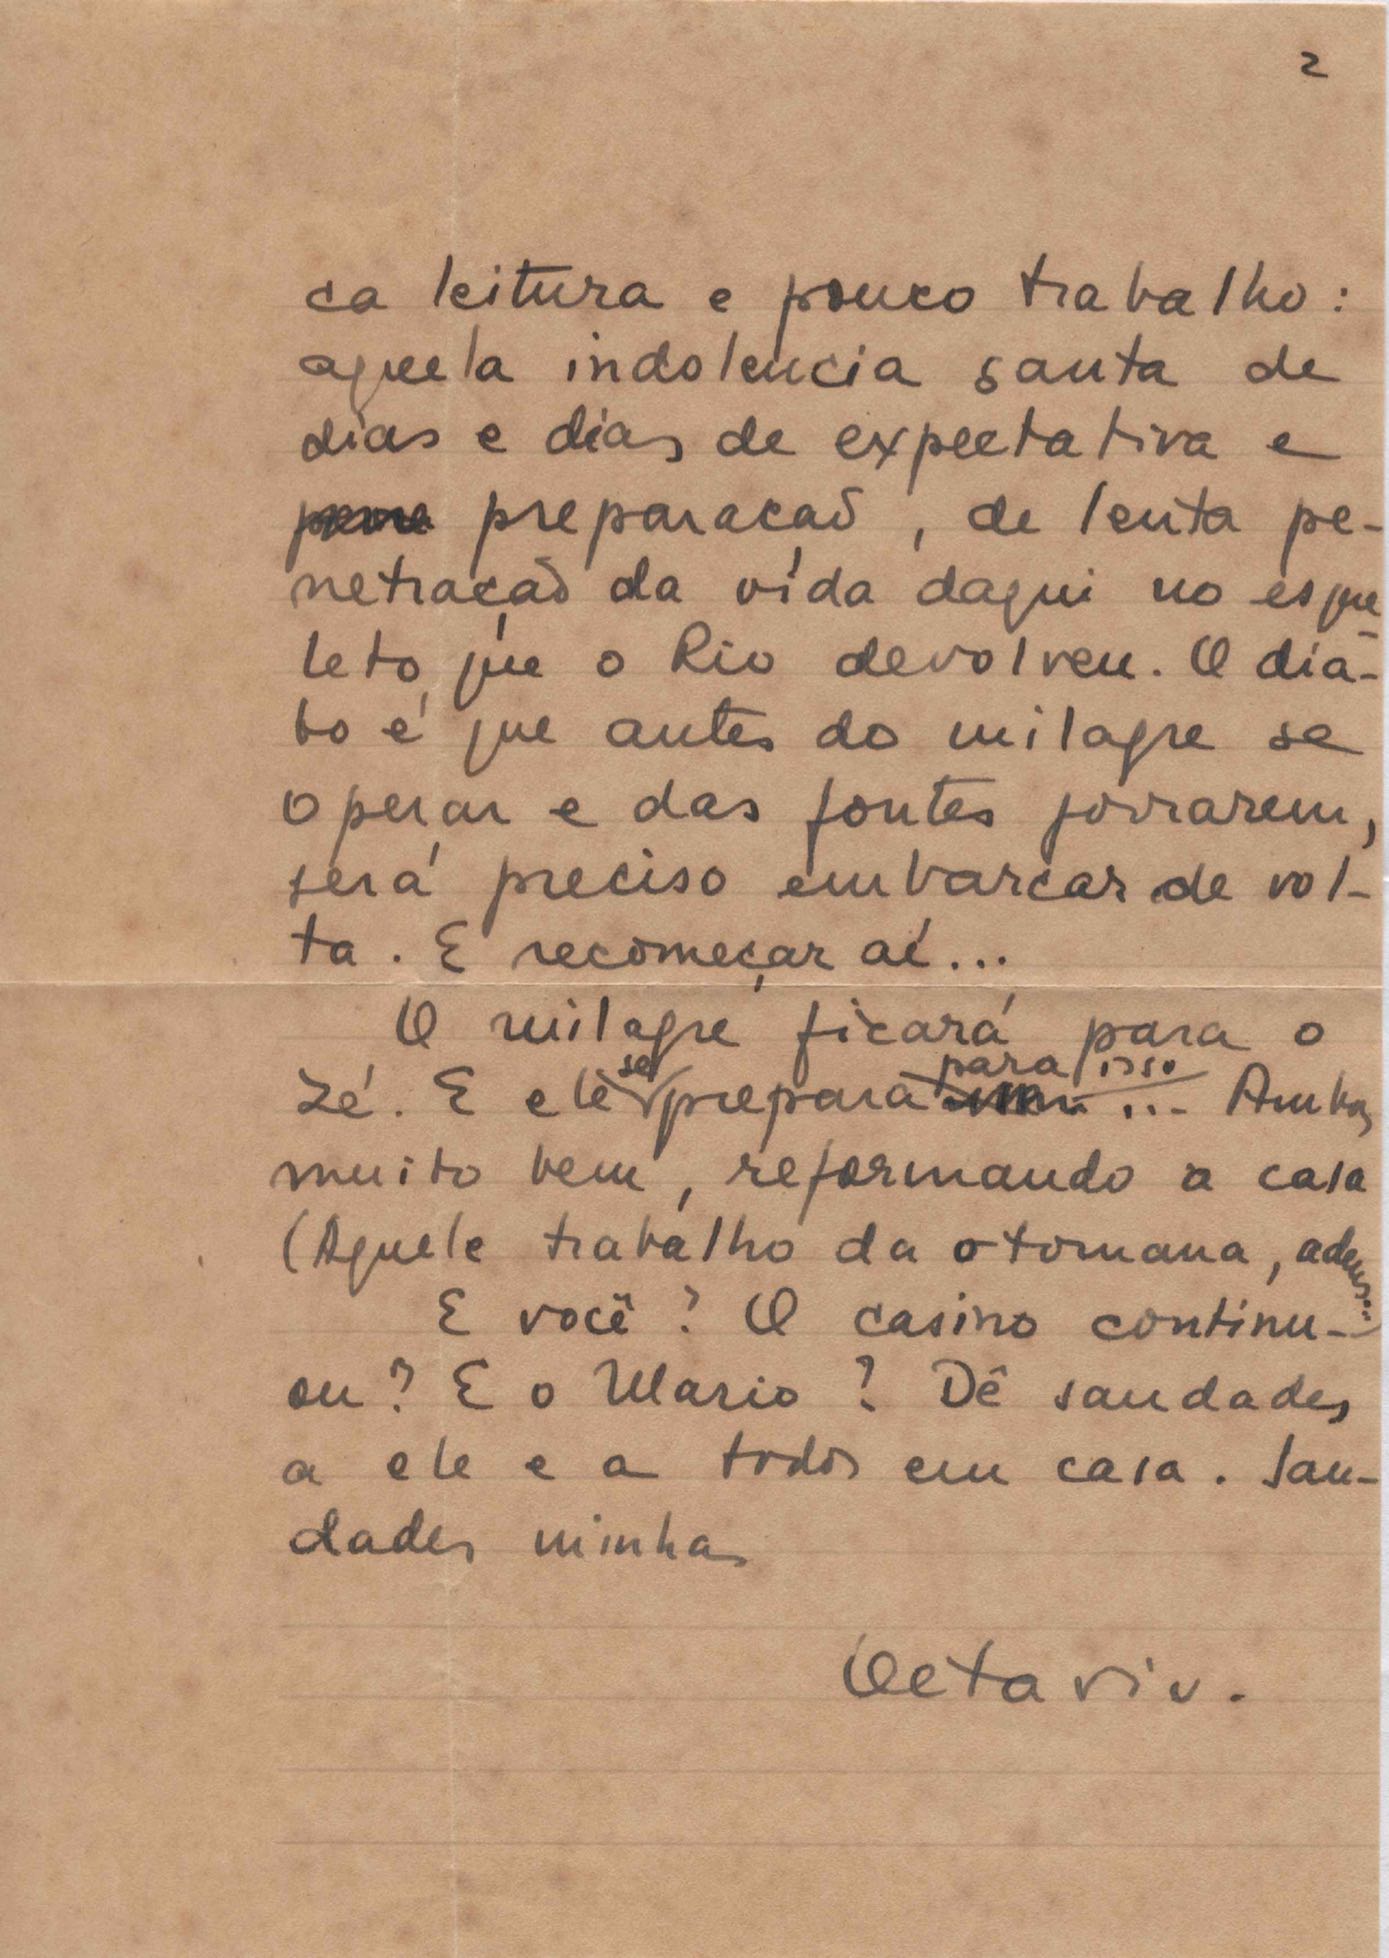 2
ca leitura e pouco trabalho:
aquela indolencia santa de
dias e dias de expectativa e
preparação, de lenta pe-
netração da vida daqui no esque-
leto que o Rio devolveu. O dia-
bo é que antes do milagre se
operar e das fontes jorrarem,
será preciso embarcar de vol-
ta. E recomeçar aí...
O milagre ficará para o
Zé. E ele se prepara para isso... Ambos
muito bem, reformando a casa
(Aquele trabalho da otomana, adeus...)
E você? O casino continu-
ou? E o Mario? Dê saudades
a ele e a todos em casa. Sau-
dades minhas
Octavio.